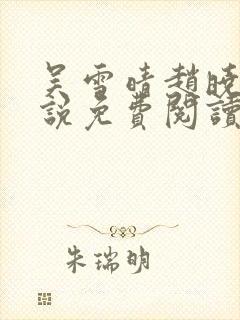 吴雪晴趙晓
説免費閱讀
朱瑞明